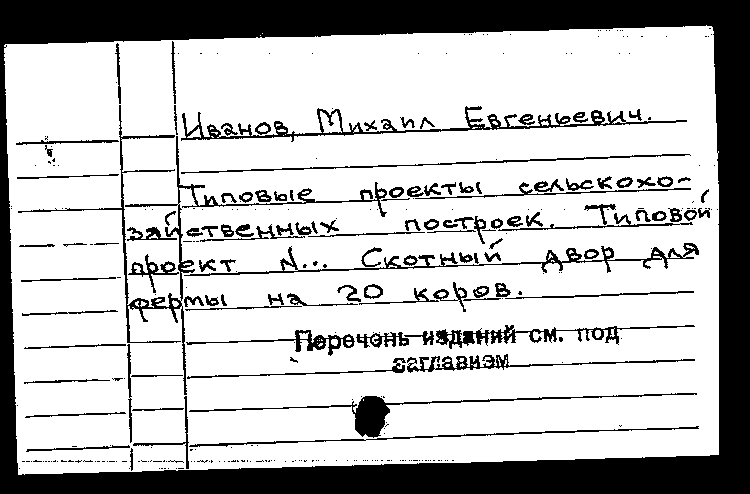 Иванов, Михаил Евгеньевич.
Типовые проекты сельскохо-
зяйственных построек. Типовой
проект N... Скотный двор для
фермы на 20 коров.
Перечень изданий см. под
заглавием